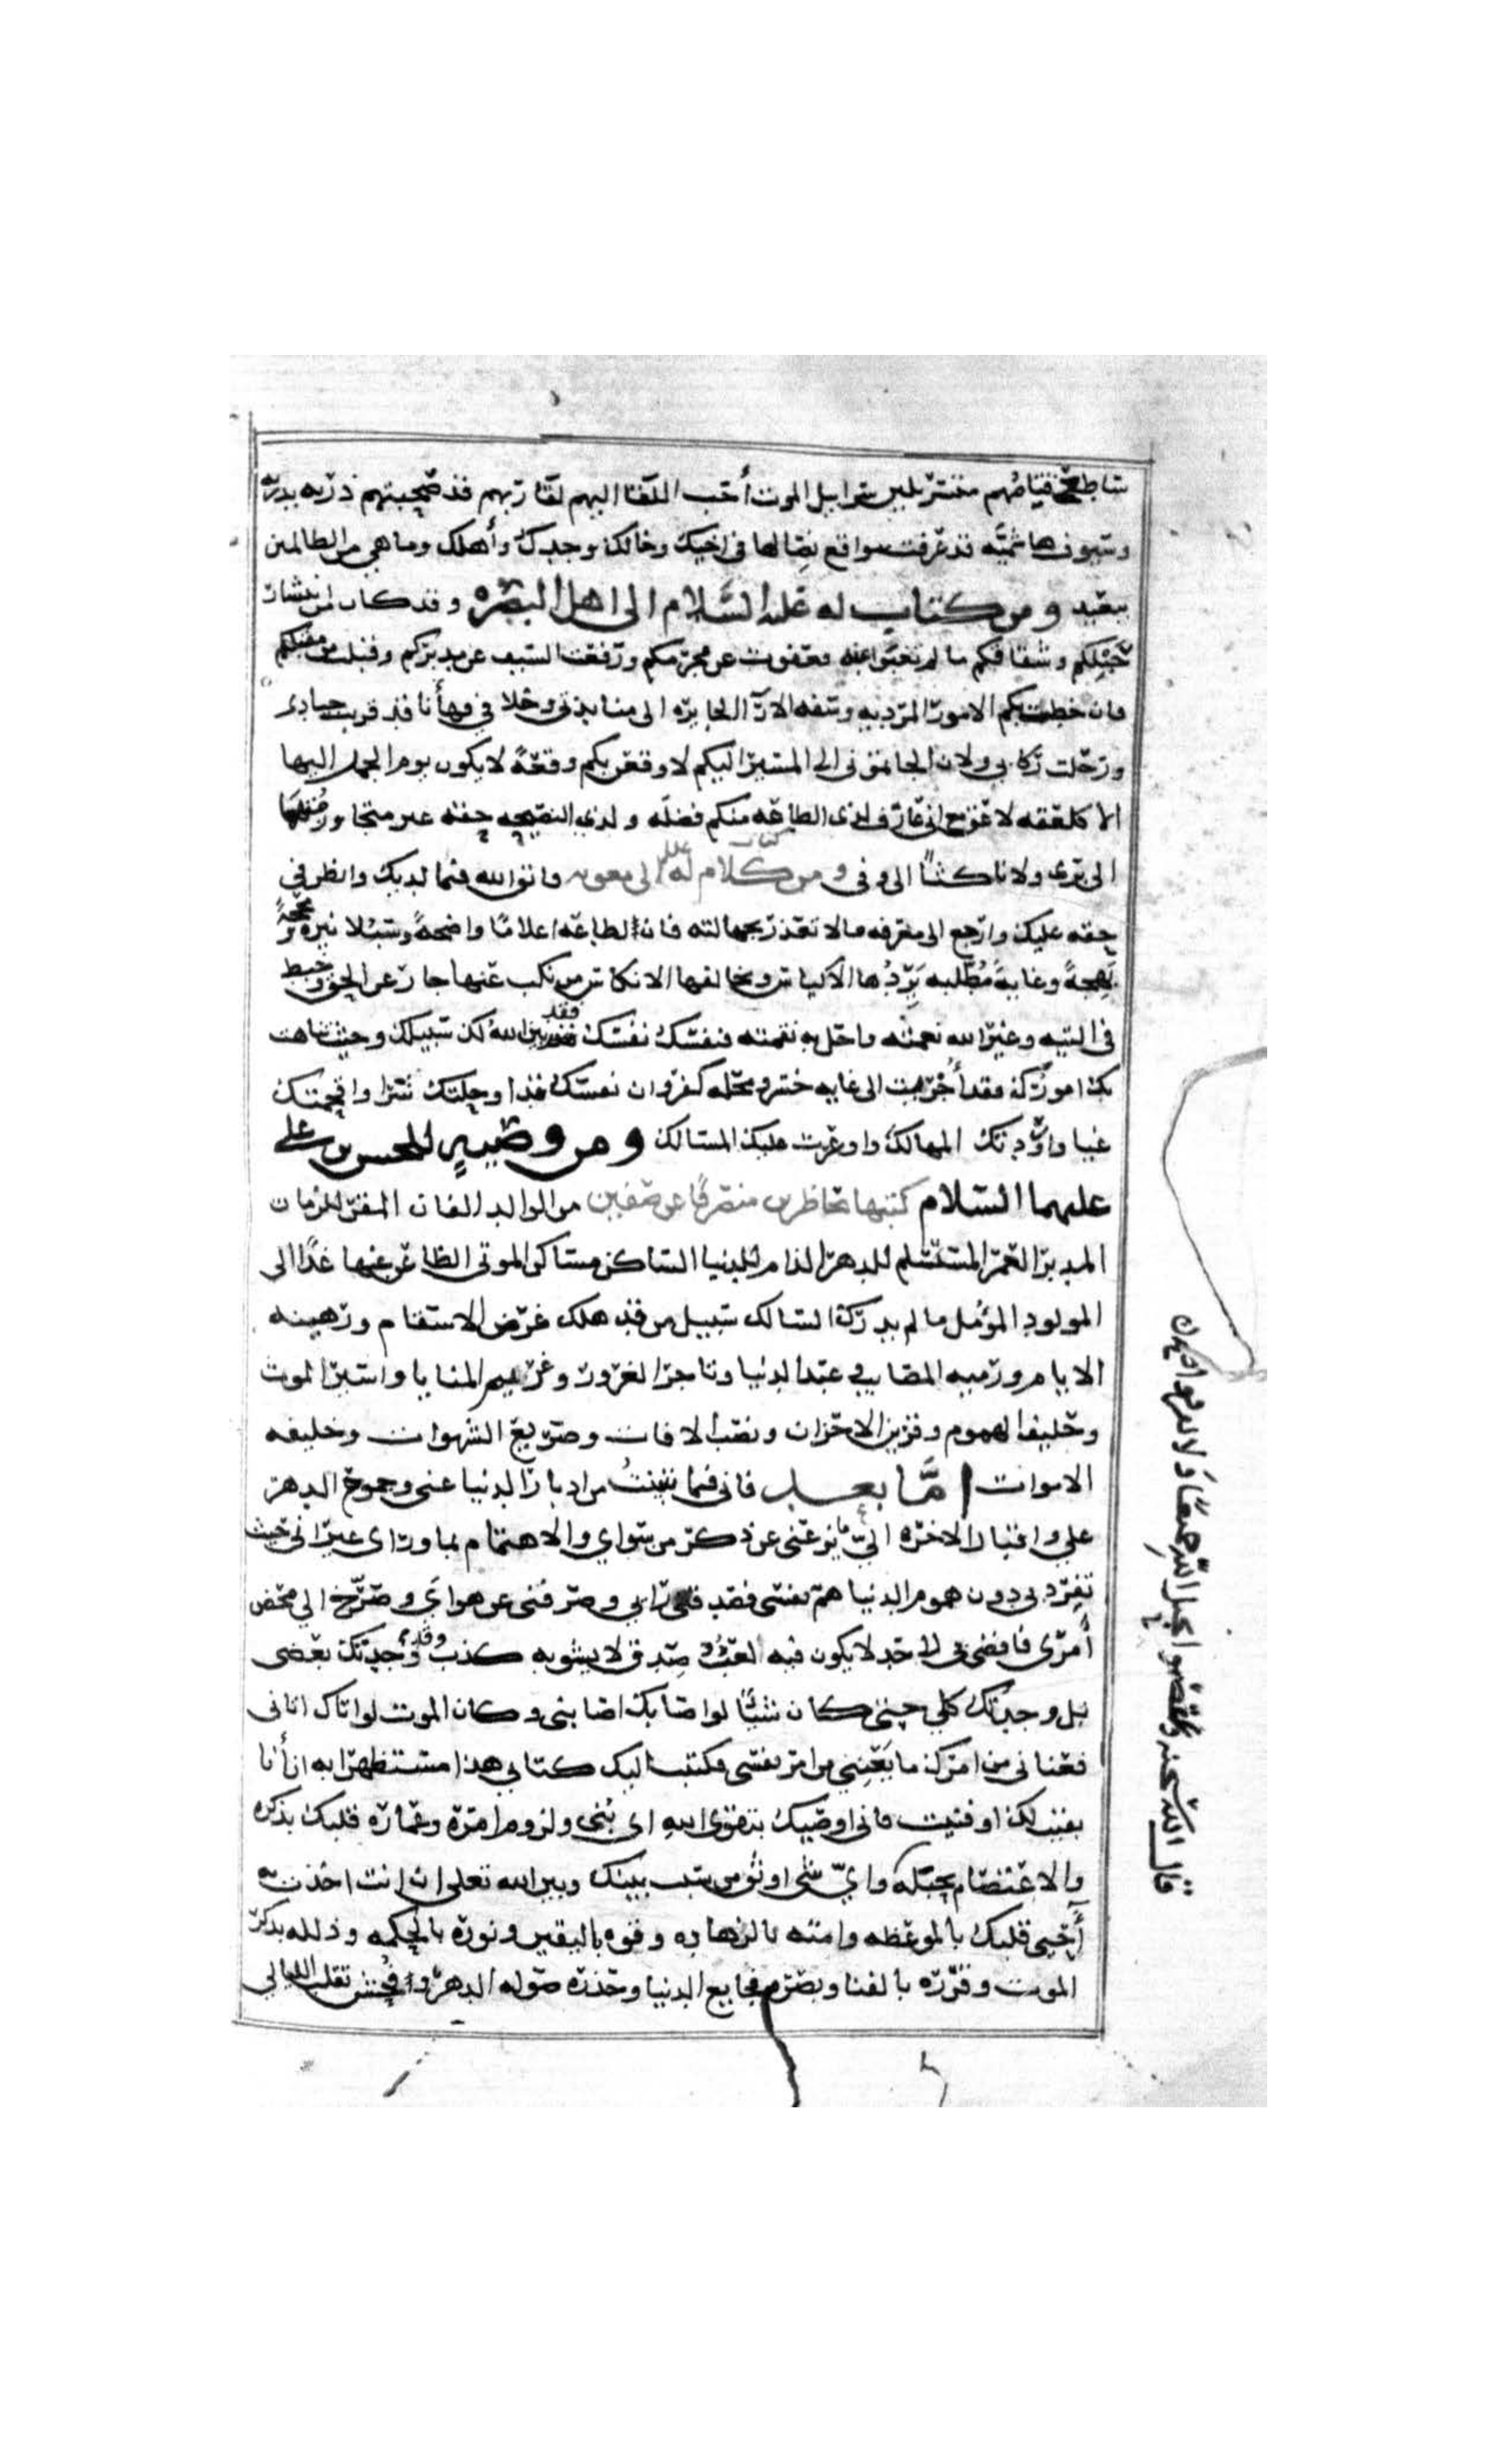 ساطع قتامهم متسربلين سرابيل الموت أحب اللقا اليهم لقا ربهم قد صحبتهم ذريه بدريه
وسيوف هاشميه قد عرفت مواقع نصالها في اخيك وخالك وجدك وأهلك وما هي من الظالمين
ببعيد ومن كتاب له عليه السلام الى اهل البصره وقد كان من انتشار
حبلكم وشقاقكم ما لم تغبوا عنه فعفوت عن مجرمكم ورفعت السيف عن مدبركم وقبلت من مقبلكم
فان خطت بكم الامور المرديه وسفه الارآ الجايره الى منابذتى وخلافي فهأنا قد قربت جيادى
ورحلت ركابي ولان الجاتمونى الى المسير اليكم لاوقعن بكم وقعةً لا يكون يوم الجمل اليها
الا كلعقه لاعق مع انى عارف لذى الطاعه منكم فضله ولذي النصيحه حقه غير متجاوز متهما
الى برى ولا ناكثاً الى وفى ومن كتاب كلام له الى معويه فاتق الله فيما لديك وانظر في
حقه عليك وارجع الى معرفه ما لا تعذر بجهالته فان للطاعه اعلامًا واضحةً وسبلا نيره ومحجةً
نهجةً وغايةً مُطلبه يَرِدُها الاكياس ويخالفها الانكاس من نكب عنها جار عن الحق وخبط
في التيه وغير الله نعمته واحل به نقمته فنفسك نفسك فقد بين الله لك سبيلك وحيث تناهت
بك امورك فقد أجريت الى غايه خسر ومحله كفر وان نفسك قد اوحلتك شرا واقحمتك
غيا واوردتك المهالك واوعرت عليك المسالك ومن وصيهٍ للحسن بن على
عليهما السلام كتبها بحاظرين منصرفًا عن صفين من الوالد الفان المقر للزمان
المدبر العمر المستسلم للدهر الذام للدنيا الساكن مساكن الموتى الظاعن عنها غدًا الى
المولود المؤمل ما لم يدرك السالك سبيل من قد هلك غرض الاسقام ورهينه
الايام ورميه المصايب عبد الدنيا وتاجر الغرور وغريم المنايا واسير الموت
وحليف الهموم وقرين الاحزان ونصب الافات وصريع الشهوات وخليفه
الاموات اما بعد فانى فيما تبينتُ من ادبار الدنيا عنى وجموح الدهر
علي واقبال الاخره اليّ ما يزعنى عن ذكر من سواي والاهتمام بما وراى غير انى حيث
تفرد بي دون هموم الدنيا هم نفسى فصدفنى رابي وصرفنى عن هواي وصرّح الي محض
أمرى فافضى بى الى جد لا يكون فيه لعب وصدق لا يشوبه كذب وقد وجدتك بعضى
بل وجدتك كلي حتى كان شيئًا لو اصابك اصابنى وكان الموت لو اتاك اتانى
فعنانى من امرك ما يَعْنِيني من امر نفسى فكتبت اليك كتابي هذا مستظهرا به ان أنا
بقيت لك او فنيت فانى اوصيك بتقوى الله اى بُنى ولزوم امره وعماره قلبك بذكره
والاعتصام بحبله وايّ شى اوثق من سبب بينك وبين الله تعلى ان انت اخذت به
أحيى قلبك بالموعظه وامته بالزهاده وقوه باليقين ونوره بالحكمه وذلله بذكر
الموت وقرره بالفنا وبصره فجايع الدنيا وحذره صوله الدهر وفحش تقلب الليالي
قال الله سبحنه واعتصموا بحبل الله جميعًا ولا تفرقوا